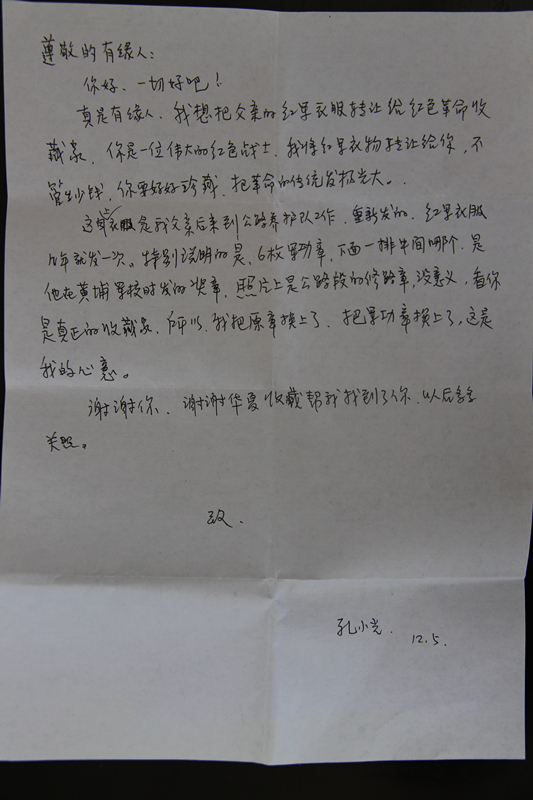 尊敬的有缘人：
你好、一切好吧！
真是有缘人、我想把父亲的红军衣服转让给红色革命收
藏家、你是一位伟大的红色战士、我将红军衣物转让给你，不
管多少钱，你要好好珍藏、把革命的传统发扬光大。
这上衣服是我父亲后来到公路养护队工作、重新发的、红军衣服
几年就发一次。特别说明的是、6枚军功章，下面一排中间哪个、是
他在黄埔军校时发的奖章，照片上是公路段的修路章，没意义，看你
是真正的收藏家、所以、我把原章换上了、把军功章换上了，这是
我的心意。
谢谢你、谢谢华夏收藏帮我找到了你、以后多多
关照。
致、
孔小光、
12.5.